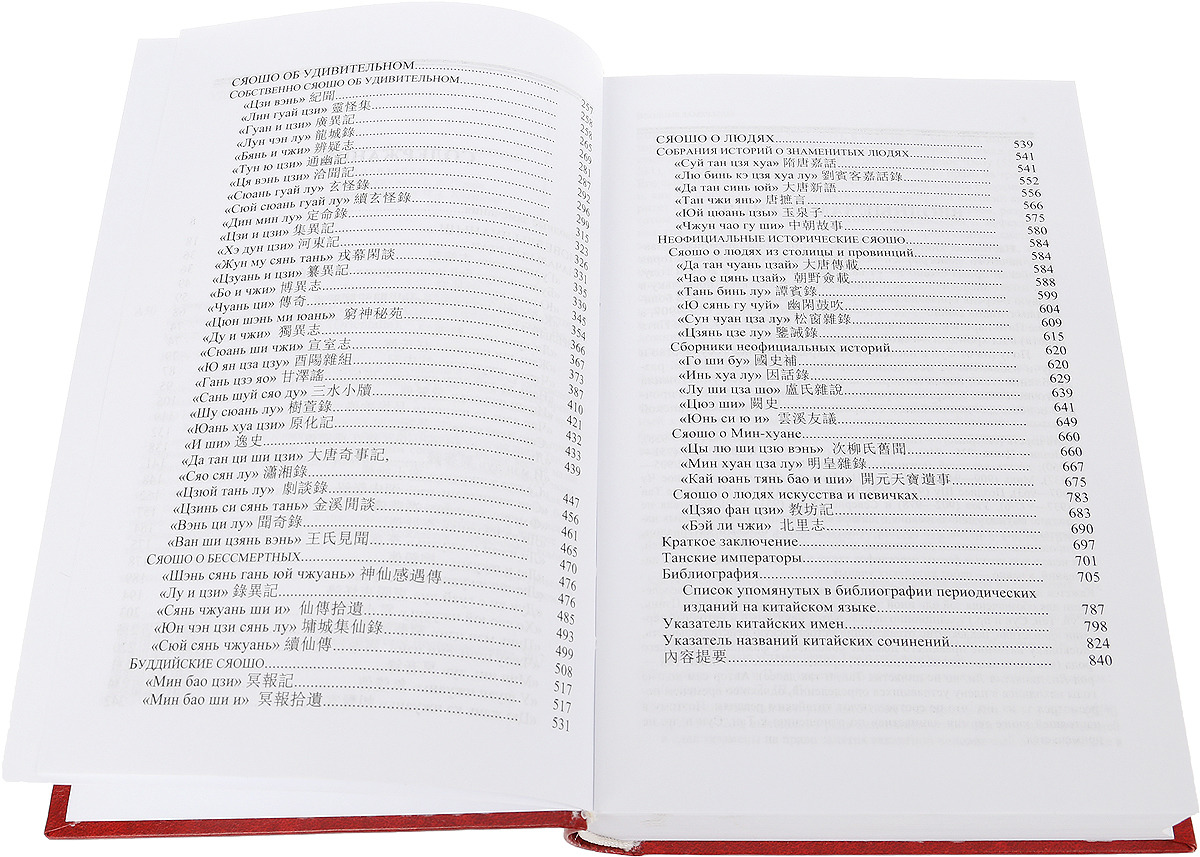 СЯОШО ОБ УДИВИТЕЛЬНОМ 257
СОБСТВЕННО СЯОШО ОБ УДИВИТЕЛЬНОМ 258
«Цзи вэнь» 紀聞 258
«Лин гуай цзи» 靈怪集 265
«Гуан и цзи» 廣異記 269
«Лун чэн лу» 龍城錄 281
«Бянь и чжи» 辨疑志 287
«Тун ю цзи» 通幽記 292
«Ця вэнь цзи» 洽聞記 296
«Сюань гуай лу» 玄怪錄 299
«Сюй сюань гуай лу» 續玄怪錄 315
«Дин мин лу» 定命錄 325
«Цзи и цзи» 集異記 326
«Хэ дун цзи» 河東記 331
«Жун му сянь тань» 戎幕閑談 335
«Цзуань и цзи» 纂異記 339
«Бо и чжи» 博異志 345
«Чуань ци» 傳奇 354
«Цюн шэнь ми юань» 窮神秘苑 366
«Ду и чжи» 獨異志 367
«Сюань ши чжи» 宣室志 373
«Ю ян цза цзу» 酉陽雜組 387
«Гань цзэ яо» 甘澤謠 410
«Сань шуй сяо ду» 三水小牘 421
«Шу сюань лу» 樹萱錄 432
«Юань хуа цзи» 原化記 433
«И ши» 逸史 439
«Да тан ци ши цзи» 大唐奇事記,
«Сяо сян лу» 瀟湘錄 447
«Цзюй тань лу» 劇談錄 456
«Цзинь си сянь тань» 金溪閒談 461
«Вэнь ци лу» 聞奇錄 465
«Ван ши цзянь вэнь» 王氏見聞 470
СЯОШО О БЕССМЕРТНЫХ 476
«Шэнь сянь гань юй чжуань» 神仙感遇傳 476
«Лу и цзи» 錄異記 485
«Сянь чжуань ши и» 仙傳拾遺 493
«Юн чэн цзи сянь лу» 墉城集仙錄 499
«Сюй сянь чжуань» 續仙傳 508
БУДДИЙСКИЕ СЯОШО 517
«Мин бао цзи» 冥報記 517
«Мин бао ши и» 冥報拾遺 531
СЯОШО О ЛЮДЯХ 539
СОБРАНИЯ ИСТОРИЙ О ЗНАМЕНИТЫХ ЛЮДЯХ 541
«Суй тан цзя хуа» 隋唐嘉話 541
«Лю бинь кэ цзя хуа лу» 劉賓客嘉話錄 552
«Да тан синь юй» 大唐新語 556
«Тан чжи янь» 唐摭言 566
«Юй цюань цзы» 玉泉子 575
«Чжун чао гу ши» 中朝故事 580
НЕОФИЦИАЛЬНЫЕ ИСТОРИЧЕСКИЕ СЯОШО 584
Сяошо о людях из столицы и провинций 584
«Да тан чуань цзай» 大唐傳載 584
«Чао е цянь цзай» 朝野僉載 588
«Тань бинь лу» 譚賓錄 599
«Ю сянь гу чуй» 幽閑鼓吹 604
«Сун чуан цза лу» 松窗雜錄 609
«Цзянь цзе лу» 鑒誡錄 615
Сборники неофициальных историй 620
«Го ши бу» 國史補 620
«Инь хуа лу» 因話錄 629
«Лу ши цза шо» 盧氏雜說 639
«Цюэ ши» 闕史 641
«Юнь си ю и» 雲溪友議 649
Сяошо о Мин-хуане 660
«Цы лю ши цзю вэнь» 次柳氏舊聞 660
«Мин хуан цза лу» 明皇雜錄 667
«Кай юань тянь бао и ши» 開元天寶遺事 675
Сяошо о людях искусства и певичках 783
«Цзяо фан цзи» 教坊記 683
«Бэй ли чжи» 北里志 690
Краткое заключение 697
Танские императоры 701
Библиография 705
Список упомянутых в библиографии периодических
изданий на китайском языке 787
Указатель китайских имен 798
Указатель названий китайских сочинений 824
內容提要 840